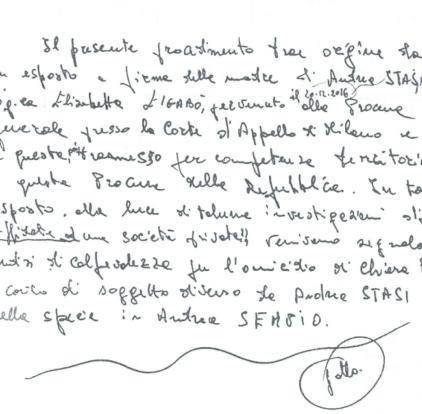 Il presente procedimento trae origine da
un esposto a firma della madre di Andrea STASI
Elisabetta LIGABÒ, pervenuto il 20.12.2016 alla Procura
Generale presso la Corte d'Appello di Milano e
questa trasmesso per competenza territoria
questa Procura della Repubblica. In ta
esposto, alla luce di talune investigazioni di
una società privata, venivano segnala
di colpevolezza per l'omicidio di Chiara
carico di soggetto diverso da Andrea STASI
nella specie in Andrea SEMPIO.